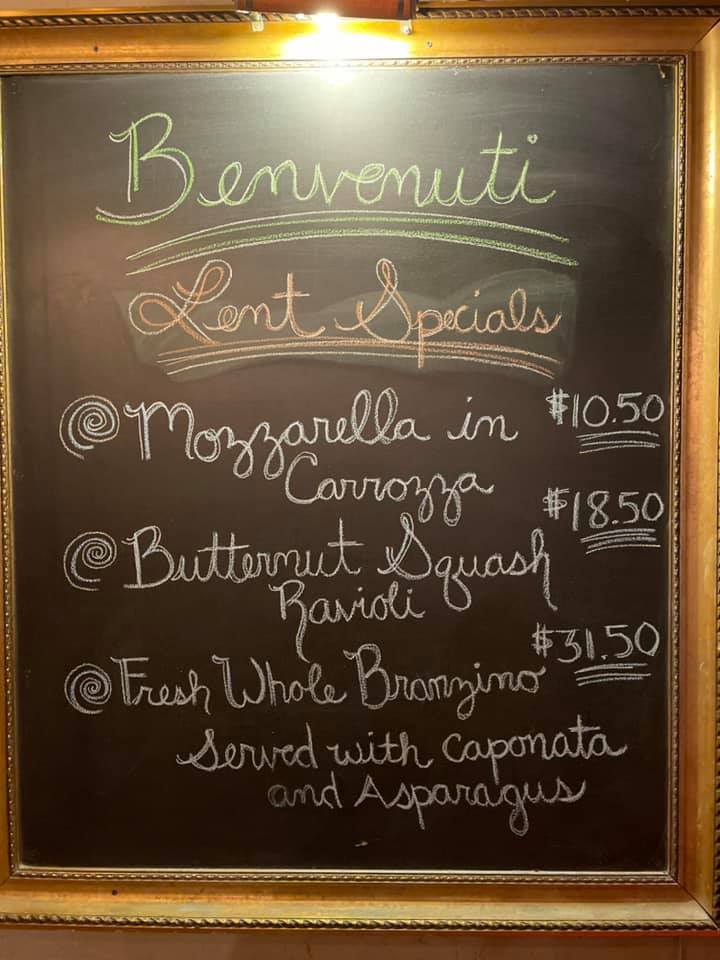 Benvenuti
Lent Specials
Mozzarella in $10.50
Carrozza
Butternut Squash $18.50
Ravioli
Fresh Whole Branzino $31.50
Served with caponata
and Asparagus